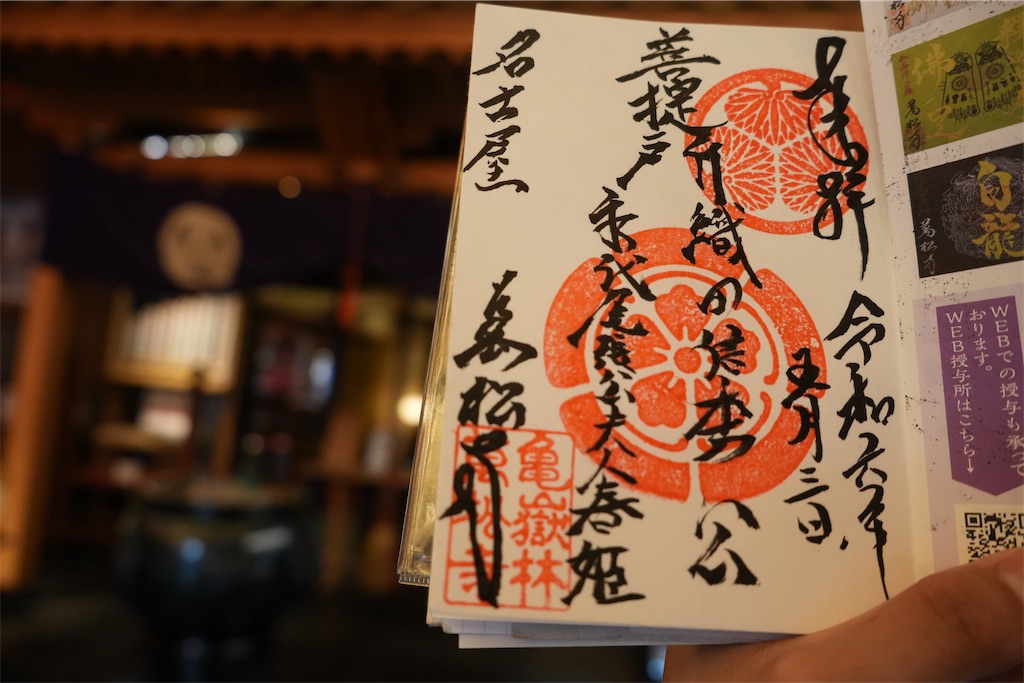 白龍
萬松寺
WEBでの授与も承って
おります。
WEB授与所はこちら→
奉拝
令和六年
五月三日
菩提所
織田信秀公
初代尾張公夫人春姫
名古屋
萬松寺
亀嶽林
萬松寺